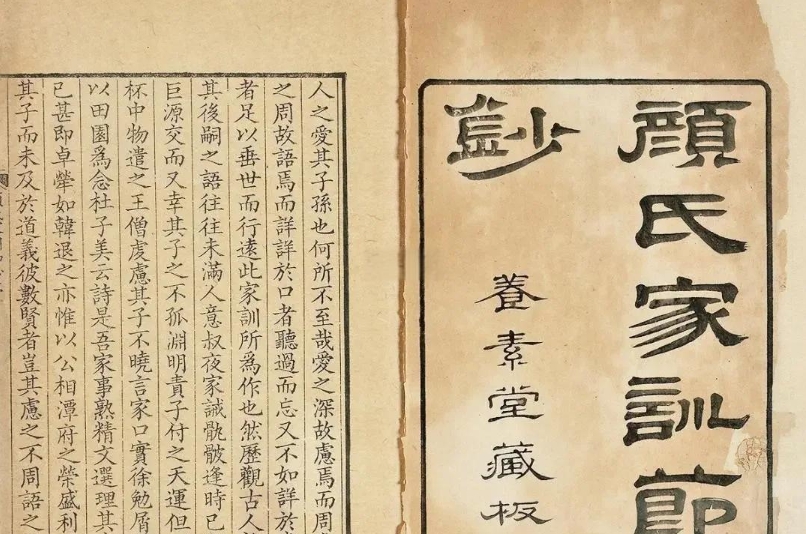 顏氏家訓節
鈔
養素堂藏板
人之愛其子孫也何所不至哉愛之深故慮焉而周
之周故語焉而詳詳於口者聽過而忘又不如詳於
者足以垂世而行遠此家訓所爲作也然歷觀古人
其後嗣之語往往未滿人意叔夜家誡骫骳逢時已
巨源交而又幸其子之不孤淵明責子付之天運但
杯中物遣之王僧虔慮其子不曉言家口實徐勉屑
以田園爲念杜子美云詩是吾家事熟精文選理其
已甚即卓犖如韓退之亦惟以公相潭府之榮盛利
其子而未及於道義彼數賢者豈其慮之不周語之